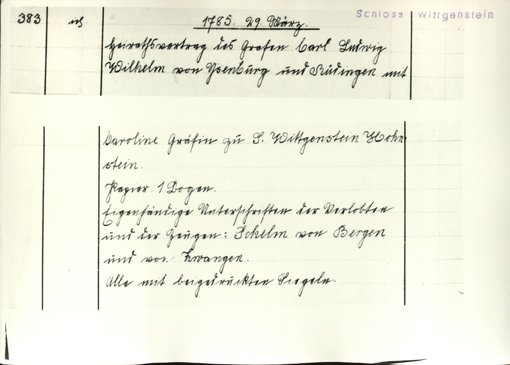 Schloss Wittgenstein
383
1785. 29. März.
Heirathsvertrag des Grafen Carl Ludwig
Wilhelm von Ysenburg und Büdingen mit
Caroline Gräfin zu S. Wittgenstein Hohen-
stein.
Papier 1 Bogen.
Eigenhändige Unterschriften der Verlobten
und der Zeugen: Schelm von Bergen
und von Zwangen.
Alle mit beigedruckten Siegeln.